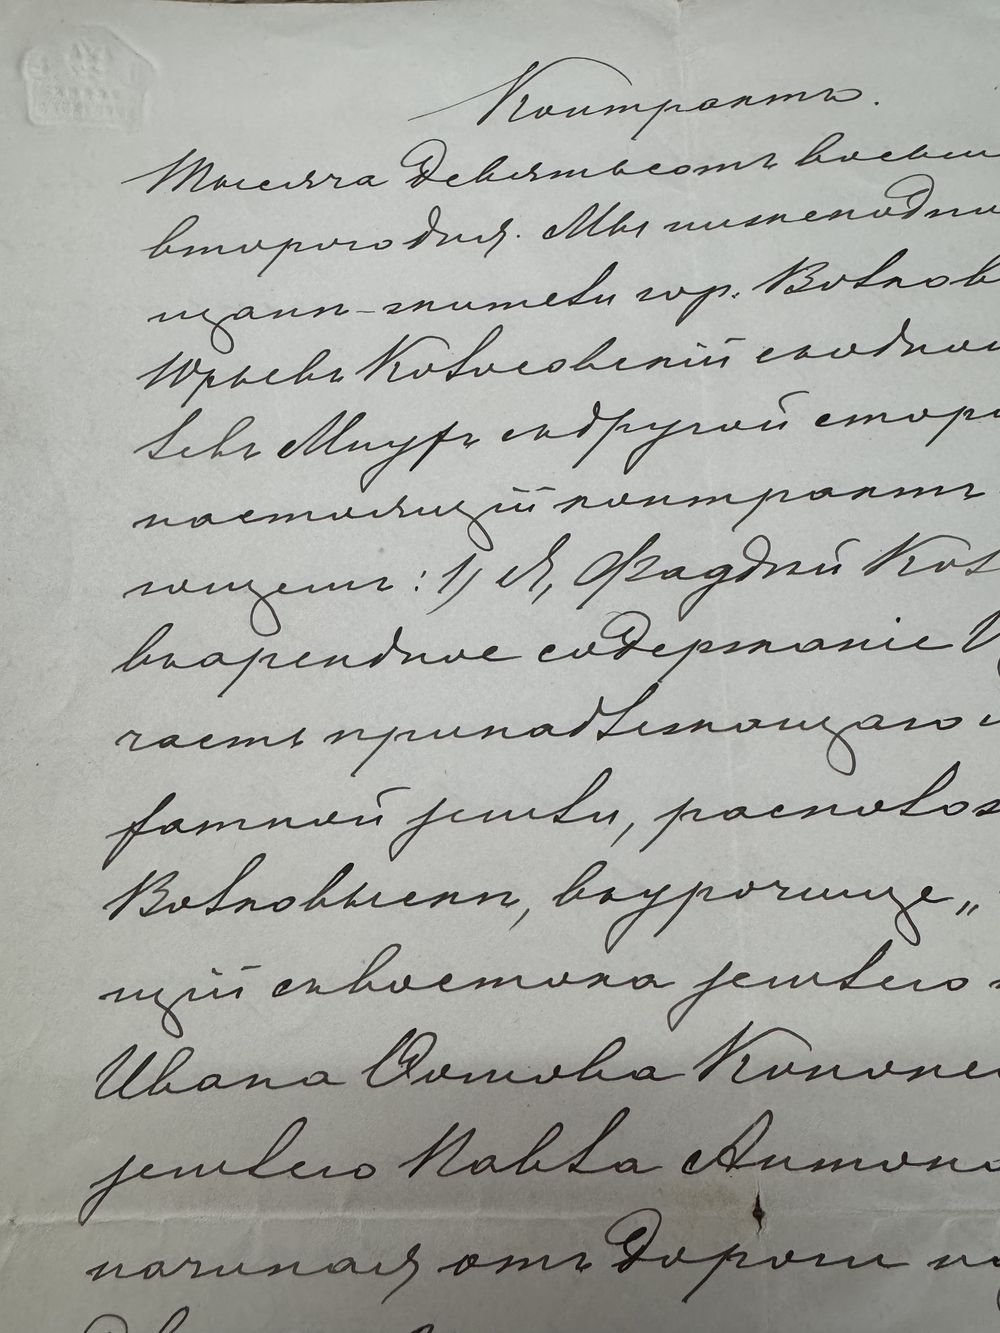 Контрактъ.
Тысяча девятьсотъ восьм
второго дня. Мы нижеподпи
щане-жители гор. Волков
Юрьевъ Колосовскій съодной
левъ съдругой сторо
настоящій контрактъ
ющемъ: 1) Я, Фаддей Кол
варендное содержаніе
часть принадлежащаго
батной земли, располож
Волковыске, вурочище „
щій съвостока землею
Ивана Кононо
землею Павла Антоно
начиная отъ дороги